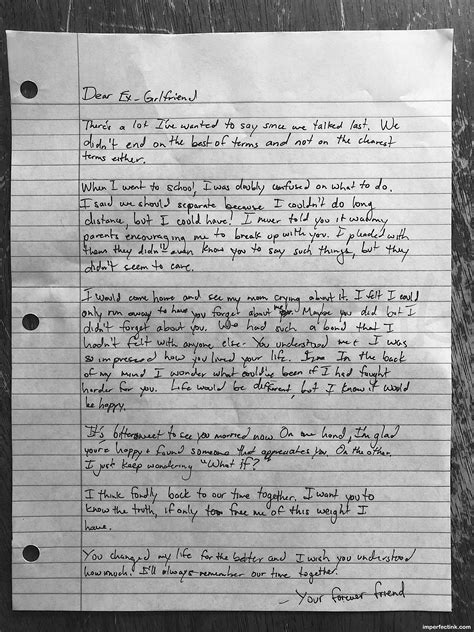 Dear Ex-Girlfriend
There's a lot I've wanted to say since we talked last. We
didn't end on the best of terms and not on the clearest
terms either.
When I went to school, I was doubly confused on what to do.
I said we should separate because I couldn't do long
distance, but I could have! I never told you it was my
parents encouraging me to break up with you. I pleaded with
them they didn't even know you to say such things, but they
didn't seem to care.
I would come home and see my mom crying about it. I felt I could
only run away to have you forget about me. Maybe you did but I
didn't forget about you. We had such a bond that I
hadn't felt with anyone else. You understood me & I was
so impressed how you lived your life. In the back
of my mind I wonder what could've been if I had fought
harder for you. Life would be different, but I know it would
be happy.
It's bittersweet to see you married now. On one hand, I'm glad
you're happy & found someone that appreciates you. On the other,
I just keep wondering "What if?"
I think fondly back to our time together. I want you to
know the truth, if only to free me of this weight I
have.
You changed my life for the better and I wish you understood
how much. I'll always remember our time together.
- Your forever friend
imperfectink.com